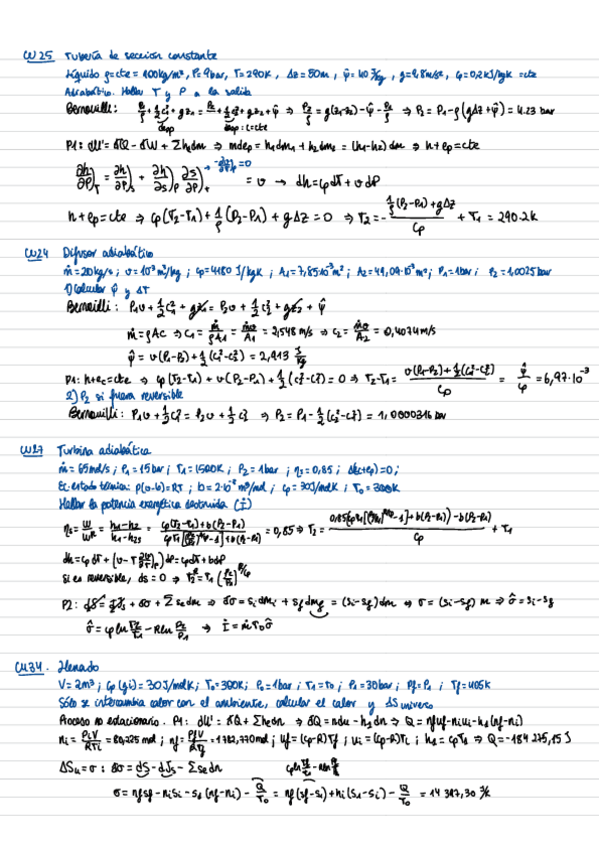 CU25 Tubería de sección constante
Líquido ρ=cte = 100kg/m³, P₁=9bar, T=290K, Δz=50m, φ̂=40 J/kg, g=9,8m/s², cp=0,2kJ/kgK =cte
Adiabático. Hallar T y P a la salida
Bernouilli: P₁/ρ + ½c₁² + gz₁ = P₂/ρ + ½c₂² + gz₂ + φ̂ ⇒ P₂/ρ = g(z₁-z₂) - φ̂ - P₁/ρ ⇒ P₂ = P₁ - ρ(gΔz + φ̂) = 4.23 bar
P1: dU = δQ - δW + Σhedm ⇒ mdep = h₁dm₁ + h₂dm₂ = (h₁-h₂)dm ⇒ h + ep = cte
∂h/∂P)T = ∂h/∂P)s + ∂h/∂s)P ∂s/∂P)T = v → dh = cpdT + vdP
h + ep = cte ⇒ cp(T₂-T₁) + 1/ρ(P₂-P₁) + gΔz = 0 ⇒ T₂ = - (1/ρ(P₂-P₁) + gΔz)/cp + T₁ = 290.2K
CU24 Difusor adiabático
ṁ=20kg/s ; v=10⁻³m³/kg ; cp=4180 J/kgK ; A₁=7,85·10⁻³m² ; A₂=49,09·10⁻³m² ; P₁=1bar ; P₂=1,0025bar
1) Calcular φ̂ y ΔT
Bernouilli: P₁v + ½c₁² + gz₁ = P₂v + ½c₂² + gz₂ + φ̂
ṁ = ρAC ⇒ C₁ = ṁ/ρA₁ = ṁv/A₁ = 2,548 m/s ⇒ C₂ = ṁv/A₂ = 0,4074m/s
φ̂ = v(P₁-P₂) + ½(c₁²-c₂²) = 2,913 J/kg
P1: h+ec=cte ⇒ cp(T₂-T₁) + v(P₂-P₁) + ½(c₂²-c₁²) = 0 ⇒ T₂-T₁ = (v(P₁-P₂) + ½(c₁²-c₂²))/cp = φ̂/cp = 6,97·10⁻³
2) P₂ si fuera reversible
Bernouilli: P₁v + ½c₁² = P₂v + ½c₂² ⇒ P₂ = P₁ - ½(c₂²-c₁²) = 1,0000316 bar
CU27 Turbina adiabática
ṁ = 65mol/s ; P₁=15bar ; T₁=1500K ; P₂=1bar ; ηs=0,85 ; Δ(ec+ep)=0 ;
Ec. estado térmica: P(v-b)=RT ; b=2·10⁻⁵ m³/mol ; cp=30J/molK ; T₀=300K
Hallar la potencia exergética destruida (İ)
ηs = W/WR = (h₁-h₂)/(h₁-h₂s) = 0,85 ⇒ T₂ =
dh = cpdT + (v - T ∂v/∂T)P)dP = cpdT + bdP
Si es reversible, ds=0 ⇒ T₂R = T₁(P₂/P₁)^R/cp
P2: dS = + δσ + Σsedm ⇒ δσ = sidmi + sfdmf = (si-sf)dm ⇔ σ = (si-sf)m ⇒ σ̂ = si-sf
σ̂ = cp ln T₂/T₁ - R ln P₂/P₁ → İ = ṁT₀σ̂
CU34. Llenado
V=2m³ ; cp(gi)=30J/molK ; T₀=300K ; P₀=1bar ; T₁=T₀ ; P₁=30bar ; Pf=P₁ ; Tf=405K
Sólo se intercambia calor con el ambiente, calcular el calor y ΔSuniverso
Proceso no estacionario. P1: dU = δQ + Σhedn ⇒ δQ = ndu - h₁dn ⇒ Q = nfuf - niui - h₁(nf-ni)
ni = PiV/RTi = 80,225 mol ; nf = PfV/RTf = 1782,770mol ; uf = (cp-R)Tf ; ui = (cp-R)Ti ; h₁ = cpT₁ ⇒ Q = -184 275,15 J
ΔSu = σ : δσ = dS - dJs - Σsedn
σ = nfsf - nisi - s₁(nf-ni) - Q/T₀ = nf(sf-s₁) + ni(s₁-si) - Q/T₀ = 14 397,30 J/K